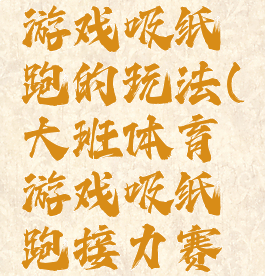 游戏吸纸
跑的玩法(
大班体育
游戏吸纸
跑接力赛